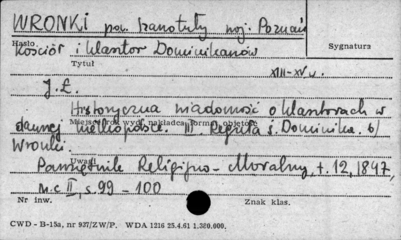 WRONKI pow. Szamotuły woj. Poznań
Hasło
Sygnatura
Kościół i klasztor Dominikanów
Tytuł
XIII-XV w.
J. Ł.
Historyczna wiadomość o klasztorach w
Miejsce i rok wyd., nakładca, format, objętość
dawnej Wielkopolsce. III. Reguła s. Dominika. 6/
Wronki.
Uwagi
Pamiętnik Religijno-Moralny, t. 12, 1847,
n.c II, s. 99 - 100
Nr inw.
Znak klas.
CWD - B-15a, nr 927/ZW/P. WDA 1216 25.4.61 1.380.000.